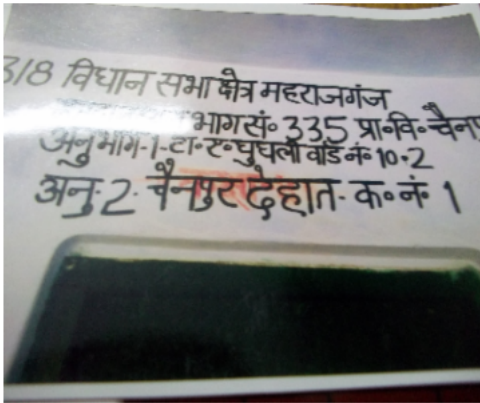 318 विधान सभा क्षेत्र महराजगंज
भाग सं॰ 335 प्रा॰ वि॰ चैनपु
अनुभाग-1-टा॰ ए॰ घुघली वार्ड नं॰ 10॰2
अनु॰ 2- चैनपुर देहात- क॰ नं॰ 1